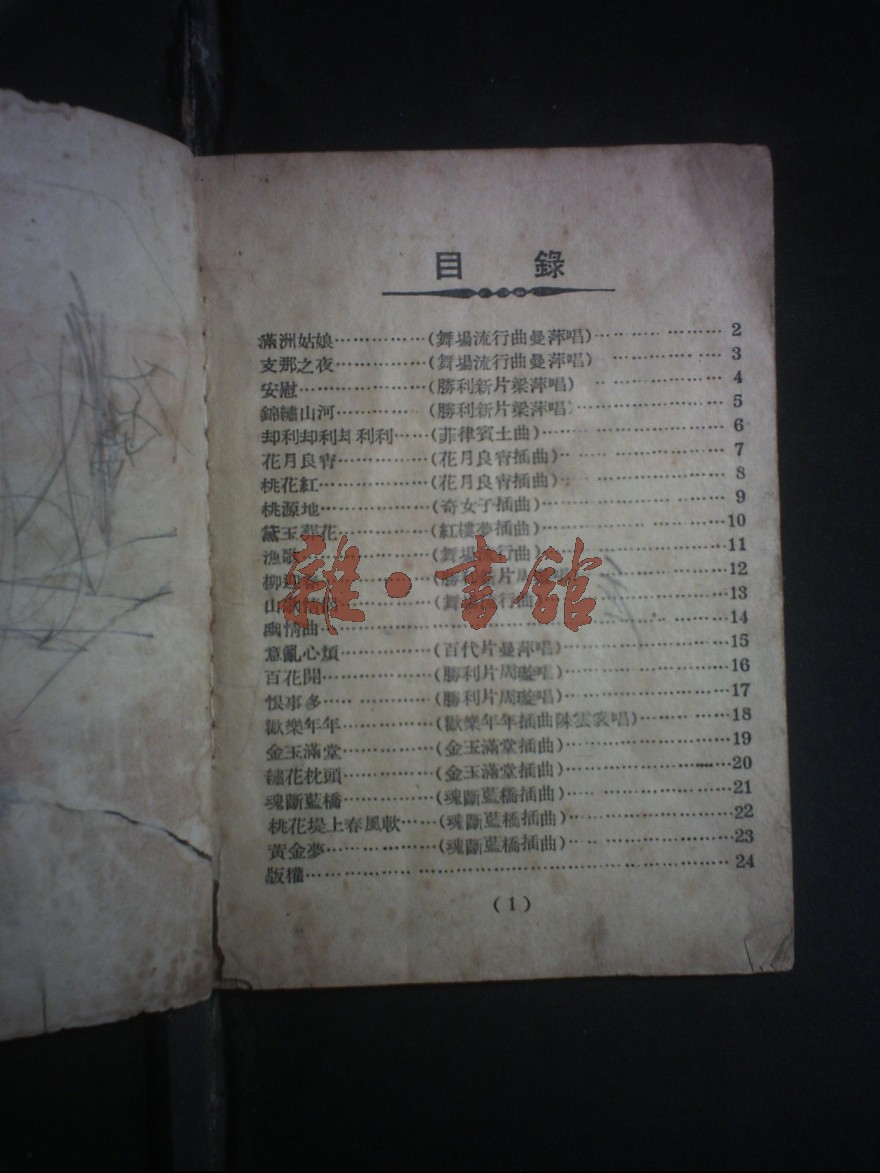 目錄
滿洲姑娘……………(舞場流行曲曼萍唱)………………2
支那之夜……………(舞場流行曲曼萍唱)………………3
安慰…………………(勝利新片梁萍唱)………………4
錦繡山河……………(勝利新片梁萍唱)………………5
却利却利却利利……(菲律賓土曲)………………6
花月良宵……………(花月良宵插曲)………………7
桃花紅………………(花月良宵插曲)………………8
桃源地………………(奇女子插曲)………………9
黛玉葬花……………(紅樓夢插曲)………………10
漁歌…………………(舞場流行曲)………………11
柳………………12
山………………(舞場 行曲)………………13
幽情曲………………14
意亂心煩……………(百代片曼萍唱)………………15
百花開………………(勝利片周璇唱)………………16
恨事多………………(勝利片周璇唱)………………17
歡樂年年……………(歡樂年年插曲陳雲裳唱)………………18
金玉滿堂……………(金玉滿堂插曲)………………19
繡花枕頭……………(金玉滿堂插曲)………………20
魂斷藍橋……………(魂斷藍橋插曲)………………21
桃花堤上春風軟……(魂斷藍橋插曲)………………22
黃金夢………………(魂斷藍橋插曲)………………23
版權………………24
(1)
雜·書館